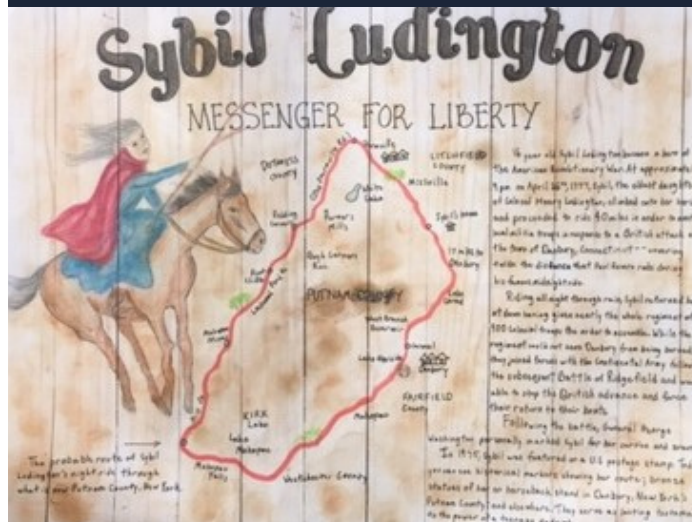 Sybil Ludington
MESSENGER FOR LIBERTY
LITCHFIELD
COUNTY
White
Lake
Farmers
Mills
Sybil's home
17 miles to
Danbury
PUTNAM COUNTY
West Branch
Reservoir
Carmel
Danbury
FAIRFIELD
County
Mahopac
KIRK
Lake
Lake
Mahopac
Mahopac
Falls
Westchester County
The probable route of Sybil
Ludington's night ride through
what is now Putnam County, New York.
16 year old Sybil Ludington became a hero of
the American Revolutionary War. At approximately
9 pm on April 26th, 1777, Sybil, the oldest daughter
of Colonel Henry Ludington, climbed onto her horse
and proceeded to ride 40 miles in order to
militia troops in response to a British attack
the town of Danbury, Connecticut -- covering
twice the distance that Paul Revere rode during
his famous midnight ride.
Riding all night through rain, Sybil returned
at dawn having given nearly the whole regiment of
400 Colonial troops the order to assemble. While the
regiment could not save Danbury from being burned,
they joined forces with the Continental Army
the subsequent Battle of Ridgefield and
able to stop the British advance and force
their return to their boats.
Following the battle, General George
Washington personally Sybil for her service and
In 1975, Sybil was featured on a U.S. postage stamp.
historical markers showing her route; bronze
statues of her on horseback stand in Danbury, New York's
Putnam County, and elsewhere. They serve as lasting
to the power of a teenage